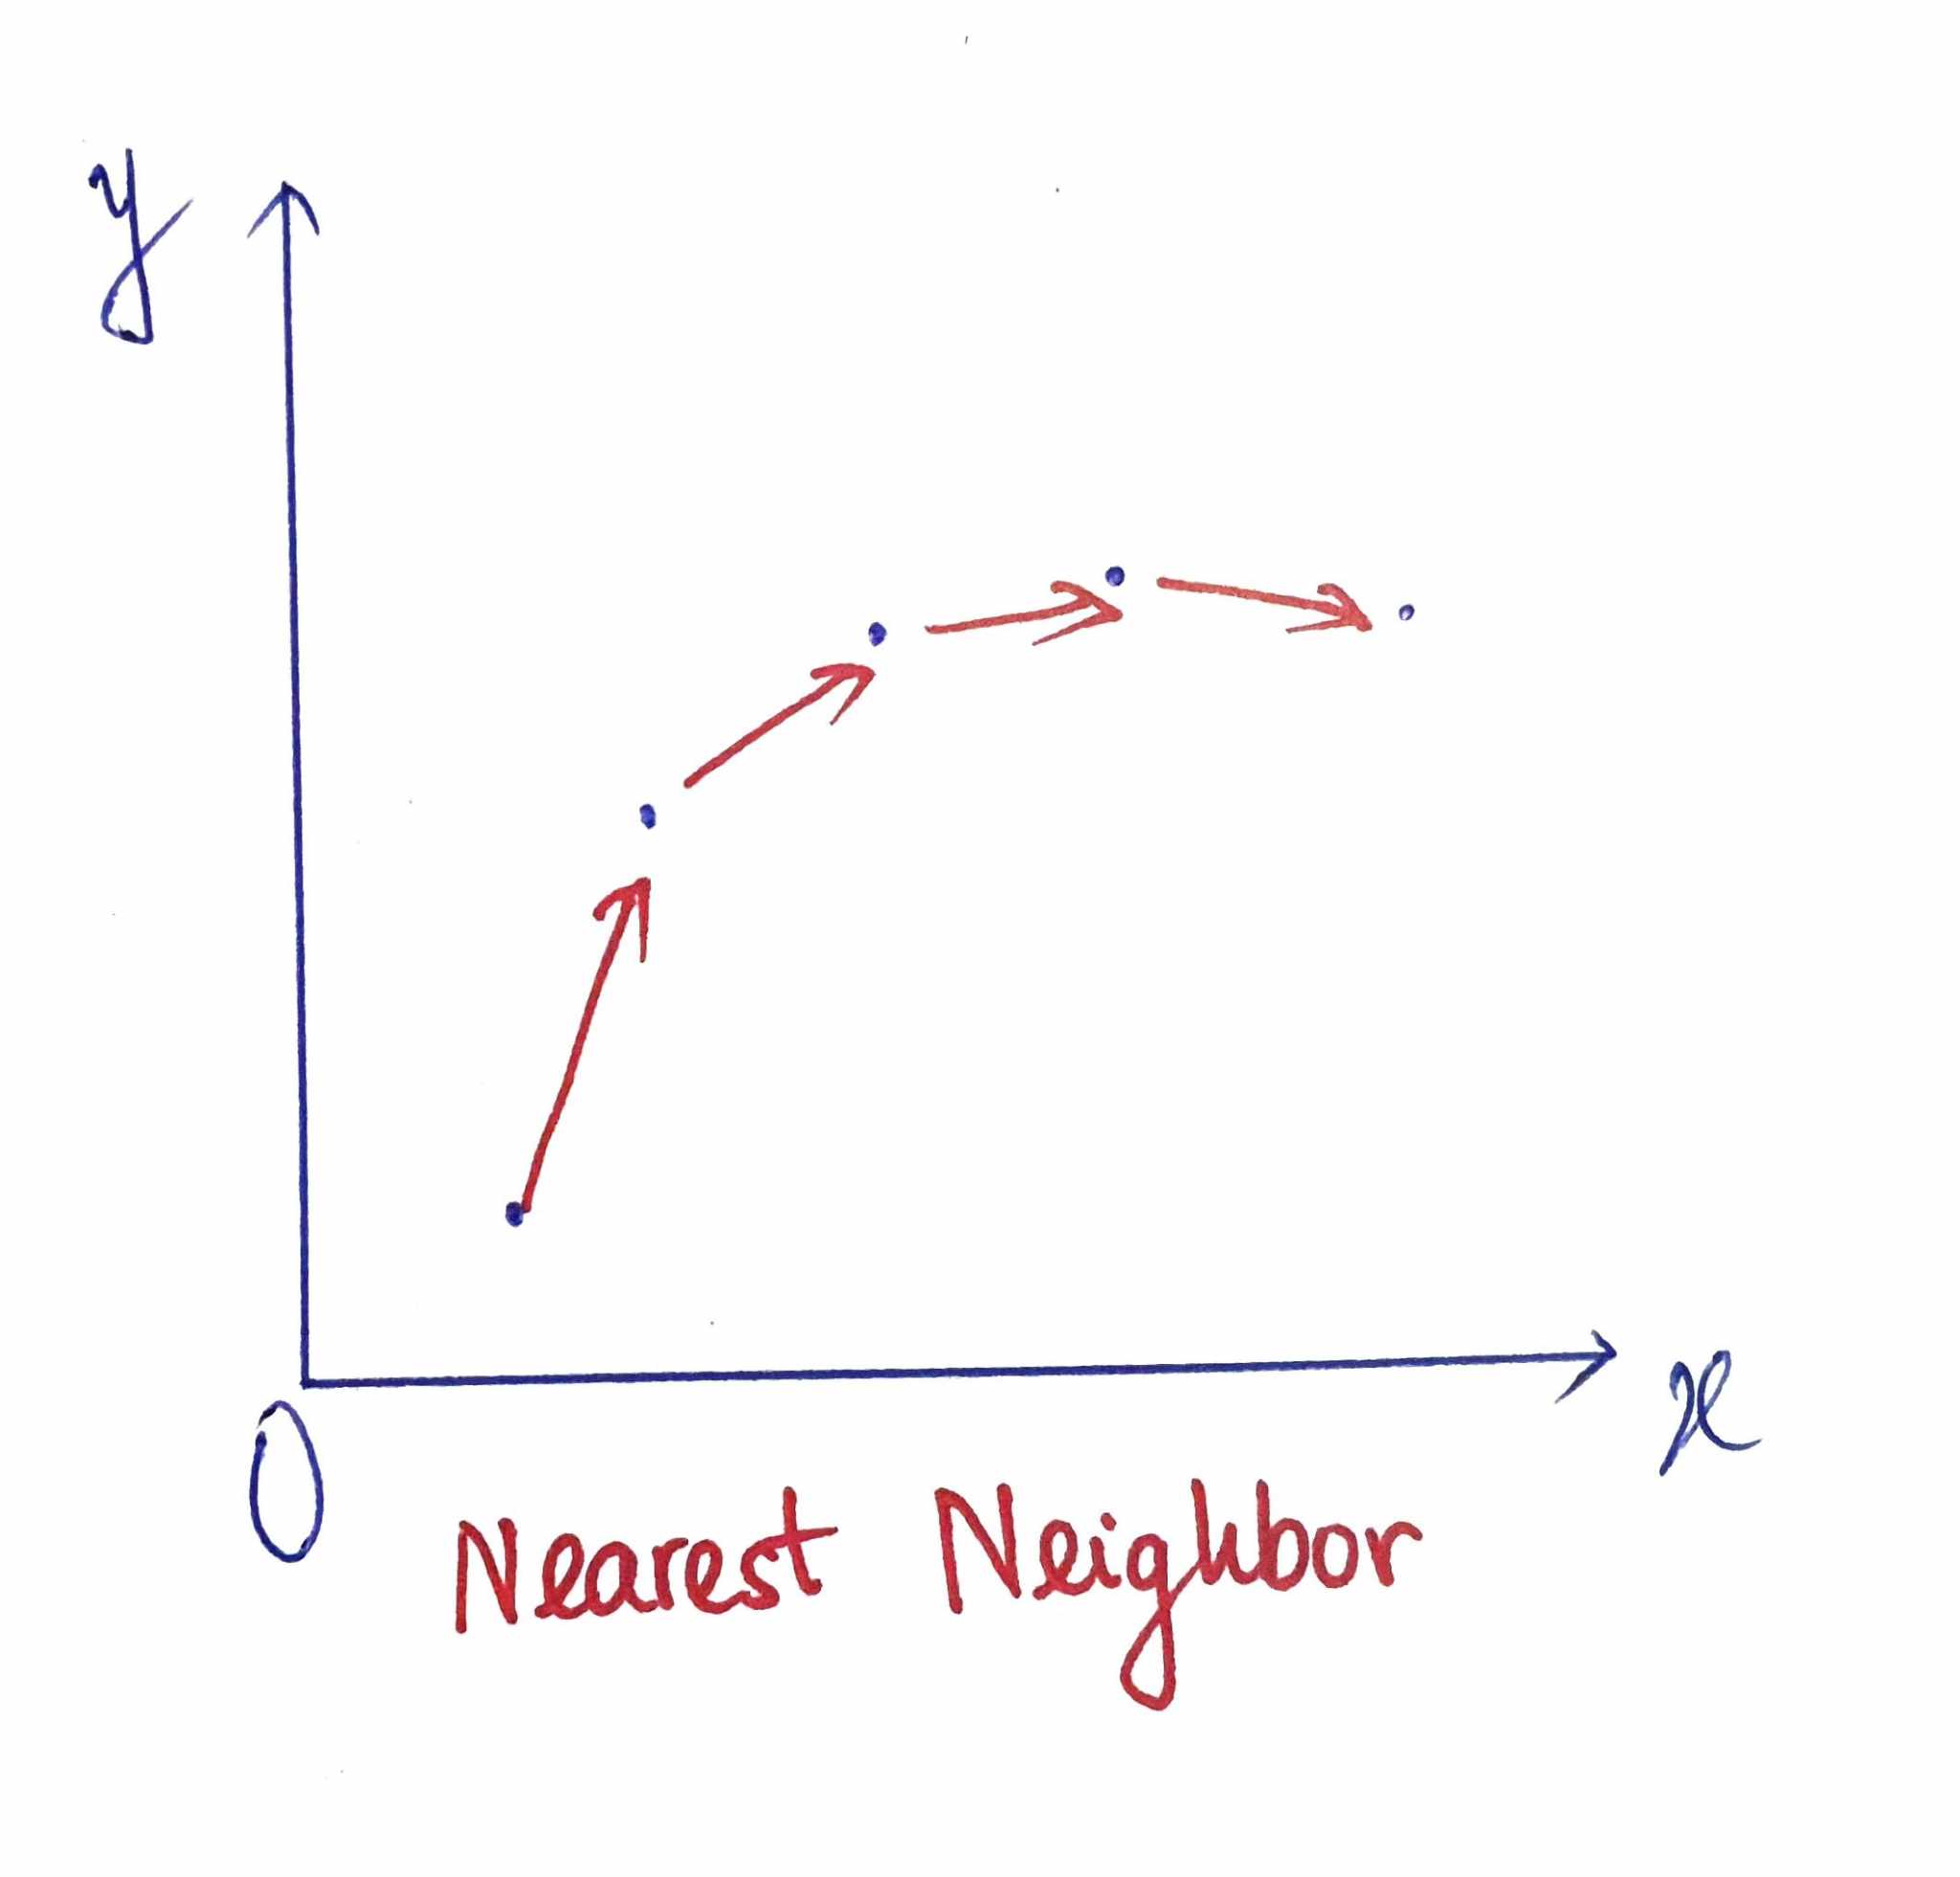 y
x
0
Nearest Neighbor